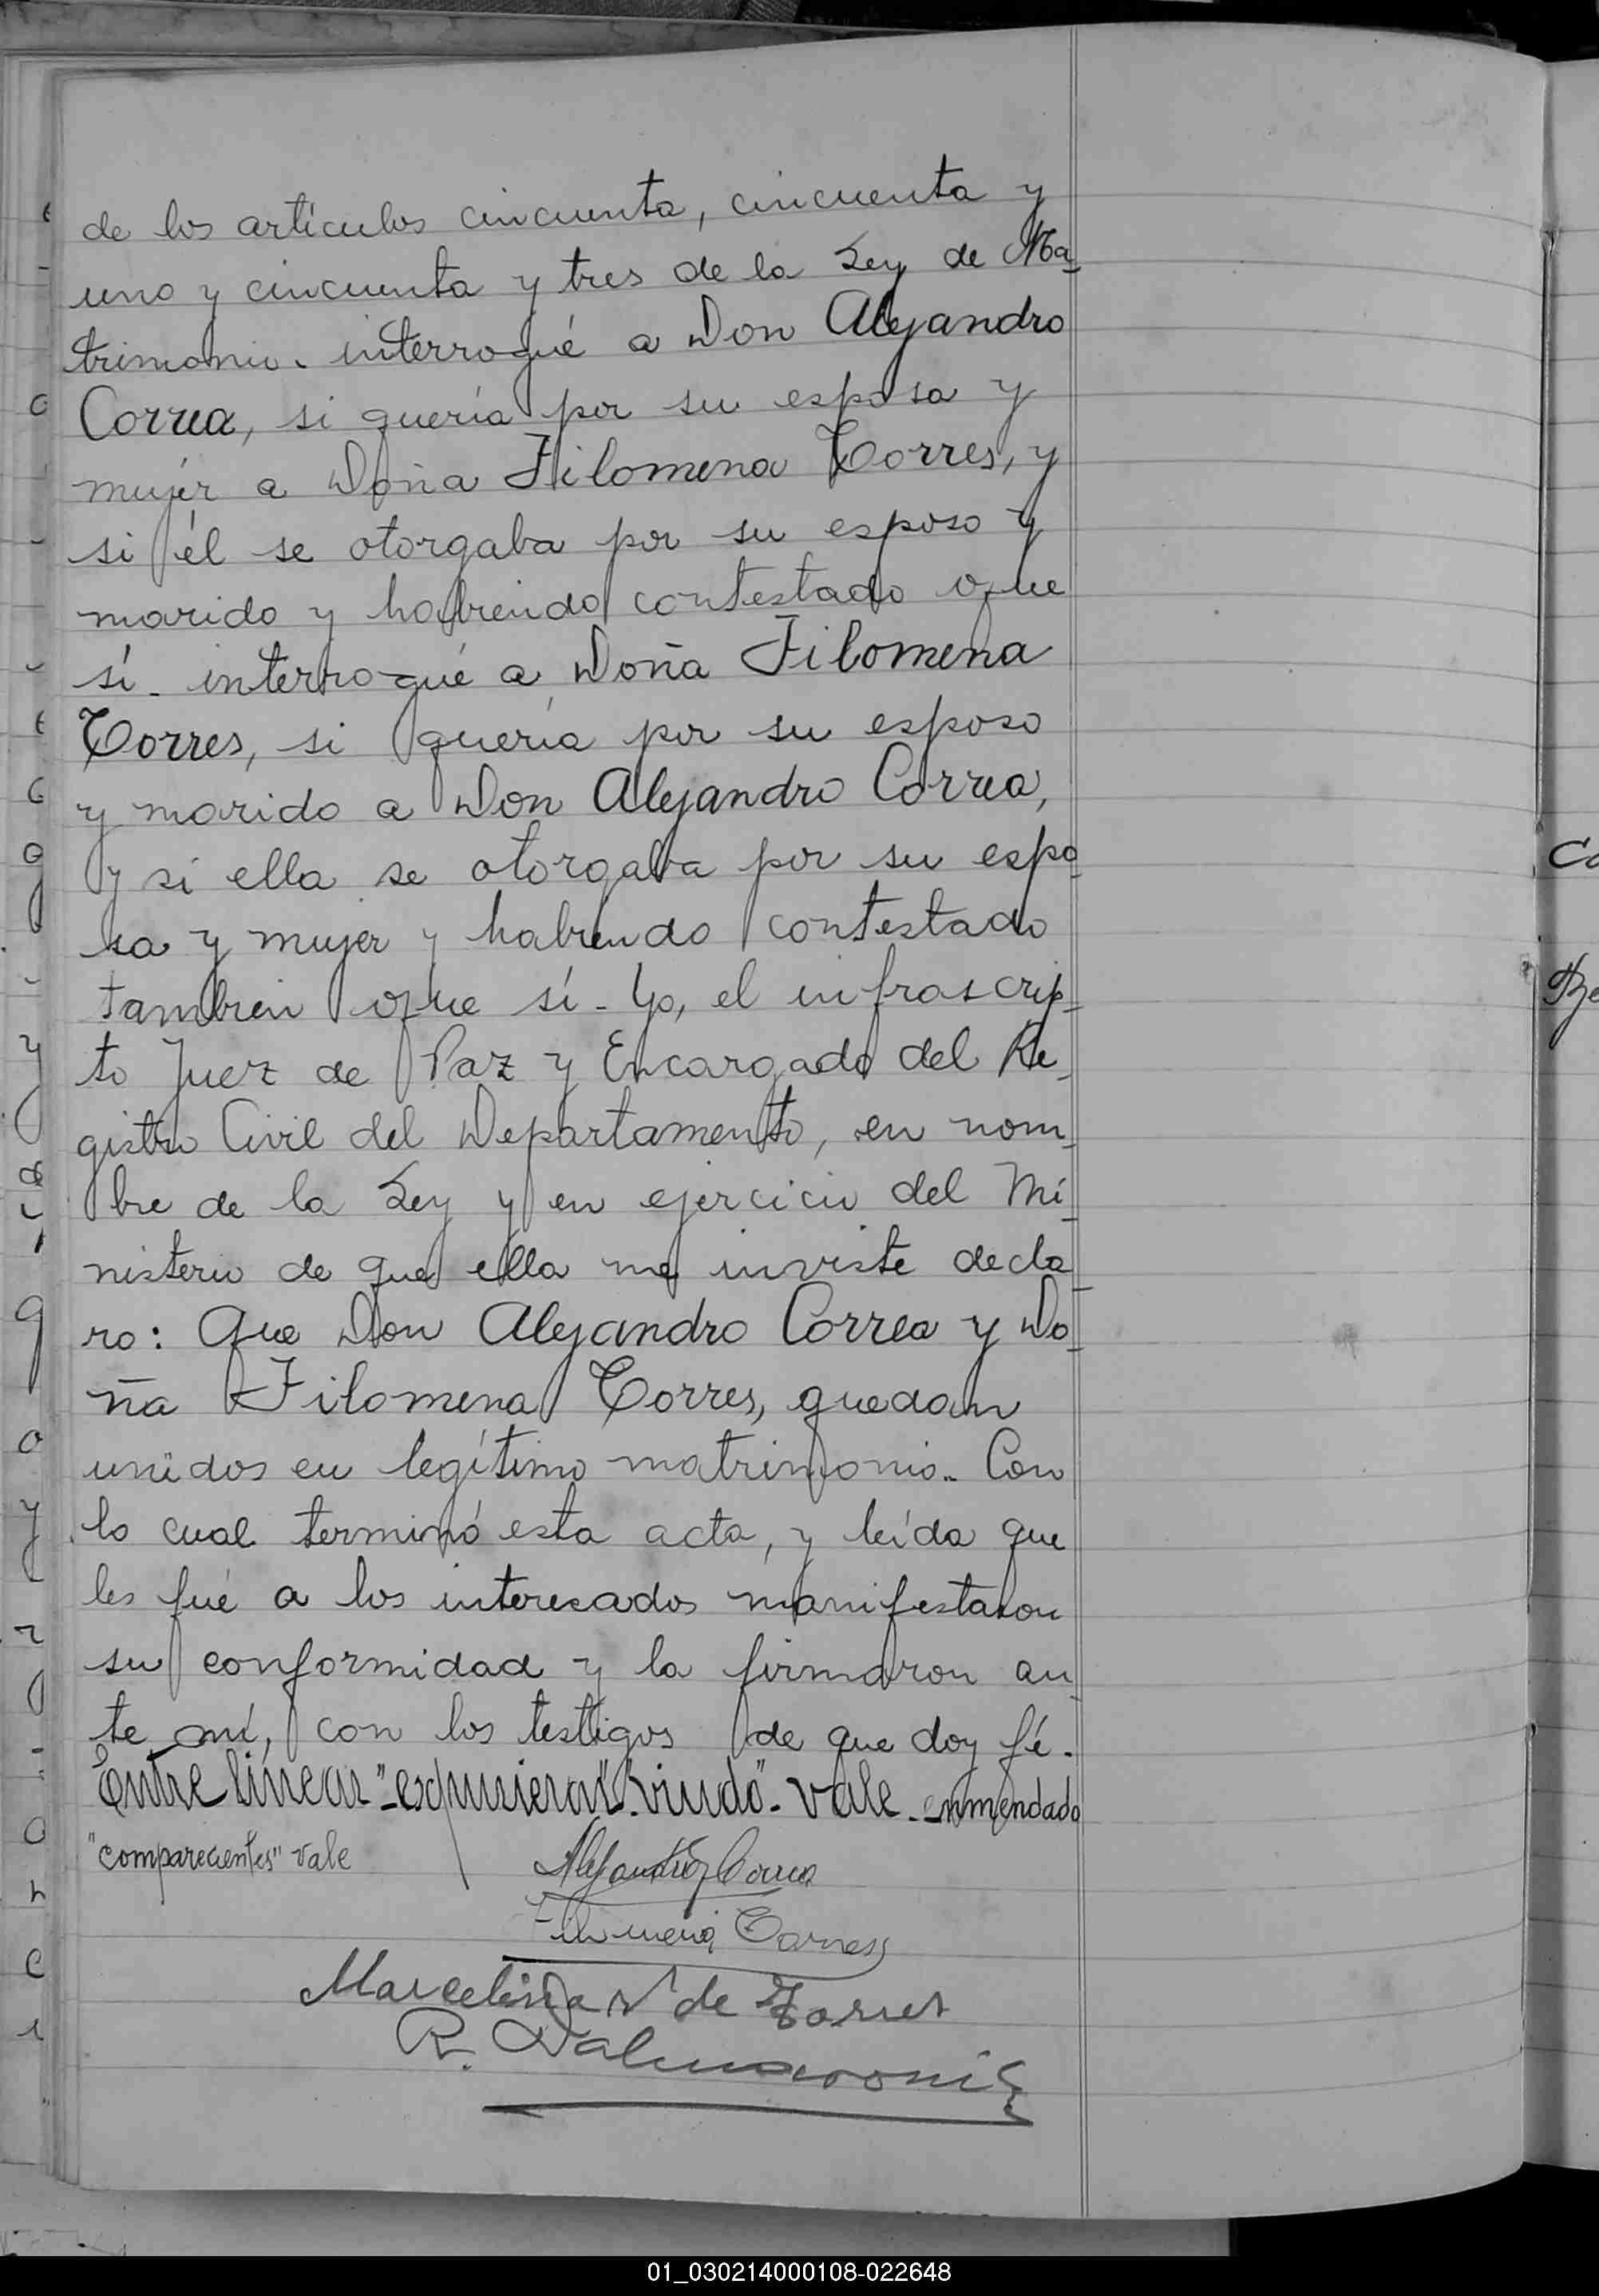 de los artículos cincuenta, cincuenta y
uno y cincuenta y tres de la Ley de Ma-
trimonio. interrogué a Don Alejandro
Correa, si quería por su esposa y
mujer a Doña Filomena Torres, y
si él se otorgaba por su esposo y
marido y habiendo contestado que
sí. interrogué a Doña Filomena
Torres, si quería por su esposo
y marido a Don Alejandro Correa,
y si ella se otorgaba por su espo-
sa y mujer y habiendo contestado
tambien que sí - Yo, el infrascrip-
to Juez de Paz y Encargado del Re-
gistro Civil del Departamento, en nom-
bre de la Ley y en ejercicio del Mi-
nisterio de que ella me inviste decla-
ro: Que Don Alejandro Correa y Do-
ña Filomena Torres, quedan
unidos en legítimo matrimonio.. Con
lo cual terminó esta acta, y leída que
les fué a los interesados manifestaron
su conformidad y la firmaron an-
te mí, con los testigos de que doy fé.
Entre líneas "viudo" - vale - enmendado
"comparecientes" vale
Alejandro Correa
Filomena Torres
Marcelina de Torres
R.
01_030214000108-022648